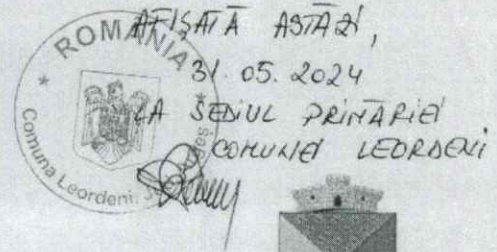 AFIȘATĂ ASTĂZI,
31.05.2024
LA SEDIUL PRIMĂRIEI
COMUNEI LEORDENI
ROMÂNIA
Comuna Leordeni,